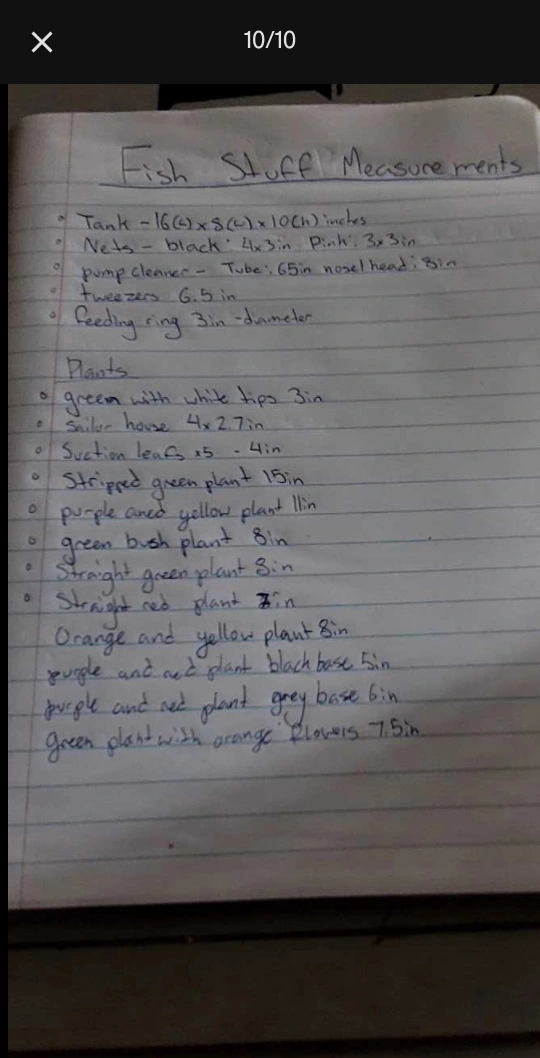 10/10
Fish Stuff Measurements
Tank - 16(L) x 8(L) x 10(h) inches
Nets - black: 4x3in Pink: 3x3in
pump cleaner - Tube: 65in nosel head: 8in
tweezers 6.5in
feeding ring 3in -diameter
Plants
green with white tips 3in
sailor house 4x2.7in
Suction leafs x5 - 4in
Stripped green plant 15in
purple aned yellow plant 11in
green bush plant 8in
Straight green plant 8in
Straight red plant in
Orange and yellow plant 8in
purple and red plant black base 5in
purple and red plant grey base 6in
green plant with orange flowers 7.5in